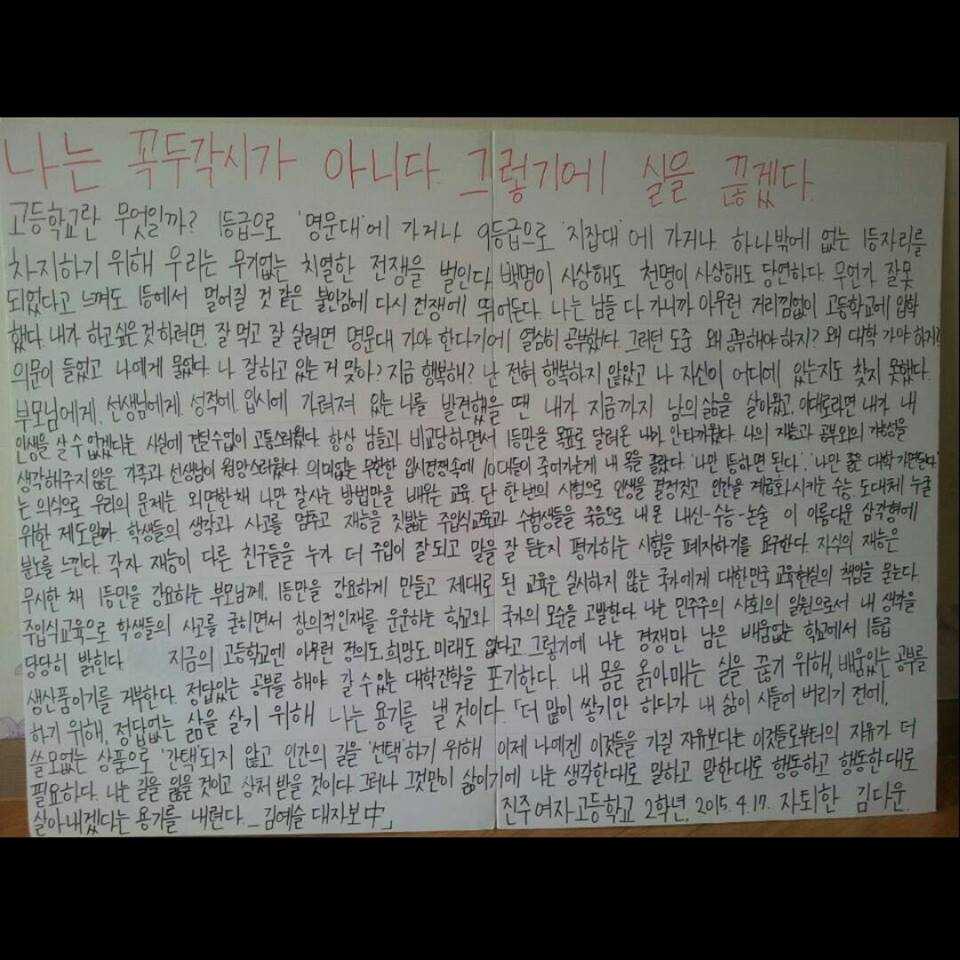 나는 꼭두각시가 아니다. 그렇기에 실을 끊겠다.
고등학교란 무엇일까? 1등급으로 '명문대'에 가거나 9등급으로 '지잡대'에 가거나. 하나밖에 없는 1등자리를
차지하기 위해 우리는 무기없는 치열한 전쟁을 벌인다. 백명이 사상해도 천명이 사상해도 당연하다. 무언가 잘못
되었다고 느껴도 1등에서 멀어질 것 같은 불안감에 다시 전쟁에 뛰어든다. 나는 남들 다 가니까 아무런 거리낌없이 고등학교에 입학
했다. 내가 하고싶은것 하려면, 잘 먹고 잘 살려면 명문대 가야 한다기에 열심히 공부했다. 그러던 도중 왜 공부해야하지? 왜 대학 가야하지?
의문이 들었고 나에게 물었다. 나 잘하고 있는 거 맞아? 지금 행복해? 난 전혀 행복하지 않았고 나 자신이 어디에 있는지도 찾지 못했다.
부모님에게, 선생님에게, 성적에, 입시에 가려져 있는 나를 발견했을 땐 내가 지금까지 남의 삶을 살아왔고, 이대로라면 내가 내
인생을 살 수 없겠다는 사실에 견딜수없이 고통스러웠다. 항상 남들과 비교당하면서 1등만을 목표로 달려온 내가 안타까웠다. 나의 재능과 공부외의 가능성을
생각해주지 않은 가족과 선생님이 원망스러웠다. 의미없는 무한한 입시경쟁속에 10대들이 죽어가는게 내 목을 졸랐다. '나만 1등하면 된다', '나만 좋은 대학가면된다'
는 의식으로 우리의 문제는 외면한채 나만 잘사는 방법만을 배우는 교육. 단 한번의 시험으로 인생을 결정짓고 인간을 계급화시키는 수능. 도대체 누굴
위한 제도일까. 학생들의 생각과 사고를 멈추고 재능을 짓밟는 주입식교육과 수험생들을 죽음으로 내몬 내신-수능-논술 이 아름다운 삼각형에
분노를 느낀다. 각자 재능이 다른 친구들을 누가 더 주입이 잘되고 말을 잘 듣는지 평가하는 시험을 폐지하기를 요구한다. 자식의 재능은
무시한 채 1등만을 강요하는 부모님께, 1등만을 강요하게 만들고 제대로 된 교육은 실시하지 않는 국가에게 대한민국 교육현실의 책임을 묻는다.
주입식교육으로 학생들의 사고를 굳히면서 창의적인재를 운운하는 학교와 국가의 모순을 고발한다. 나는 민주주의 사회의 일원으로서 내 생각을
당당히 밝힌다. 지금의 고등학교엔 아무런 정의도, 희망도, 미래도 없다고 그렇기에 나는 경쟁만 남은 배움없는 학교에서 1등급
생산품이기를 거부한다. 정답있는 공부를 해야 갈 수 있는 대학진학을 포기한다. 내 몸을 옭아매는 실을 끊기 위해, 배움있는 공부를
하기 위해, 정답없는 삶을 살기 위해 나는 용기를 낼 것이다. 「더 많이 쌓기만 하다가 내 삶이 시들어 버리기 전에,
쓸모없는 상품으로 '간택'되지 않고 인간의 길을 '선택'하기 위해 이제 나에겐 이것들을 가질 자유보다는 이것들로부터의 자유가 더
필요하다. 나는 길을 잃을 것이고 상처 받을 것이다. 그러나 그것만이 삶이기에 나는 생각한대로 말하고 말한대로 행동하고 행동한대로
살아내겠다는 용기를 내련다. _ 김예슬 대자보 中」 진주여자고등학교 2학년, 2015.4.17. 자퇴한 김다운.